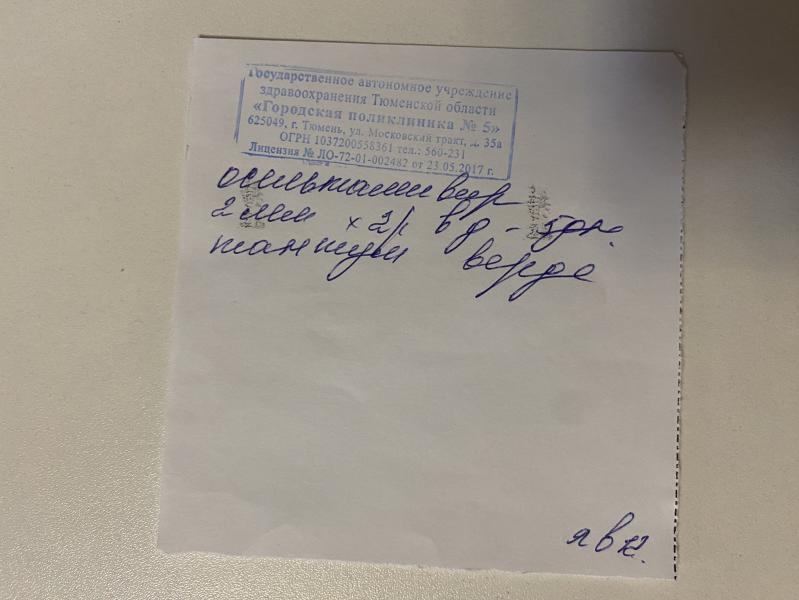 Государственное автономное учреждение
здравоохранения Тюменской области
«Городская поликлиника № 5»
625049, г. Тюмень, ул. Московский тракт, д. 35а
ОГРН 1037200558361 тел.: 560-231
Лицензия № ЛО-72-01-002482 от 23.05.2017 г.
осельтамивир
2 x 2р в д - 5дн.
тантум верде
явк.